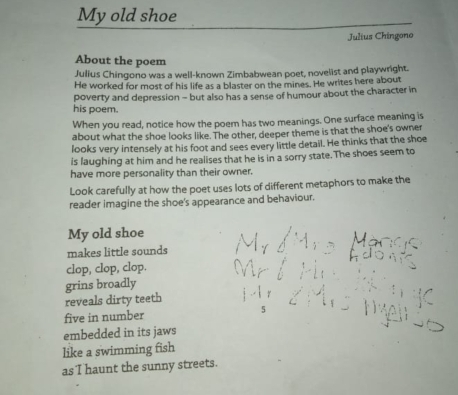 My old shoe
Julius Chingono
About the poem
Julius Chingono was a well-known Zimbabwean poet, novelist and playwright.
He worked for most of his life as a blaster on the mines. He writes here about
poverty and depression – but also has a sense of humour about the character in
his poem.
When you read, notice how the poem has two meanings. One surface meaning is
about what the shoe looks like. The other, deeper theme is that the shoe's owner
looks very intensely at his foot and sees every little detail. He thinks that the shoe
is laughing at him and he realises that he is in a sorry state. The shoes seem to
have more personality than their owner.
Look carefully at how the poet uses lots of different metaphors to make the
reader imagine the shoe's appearance and behaviour.
My old shoe
makes little sounds
clop, clop, clop.
grins broadly
reveals dirty teeth
five in number
embedded in its jaws
like a swimming fish
as I haunt the sunny streets.
Mr & Mrs
Adonis
Mr &
Mr & Mrs
5